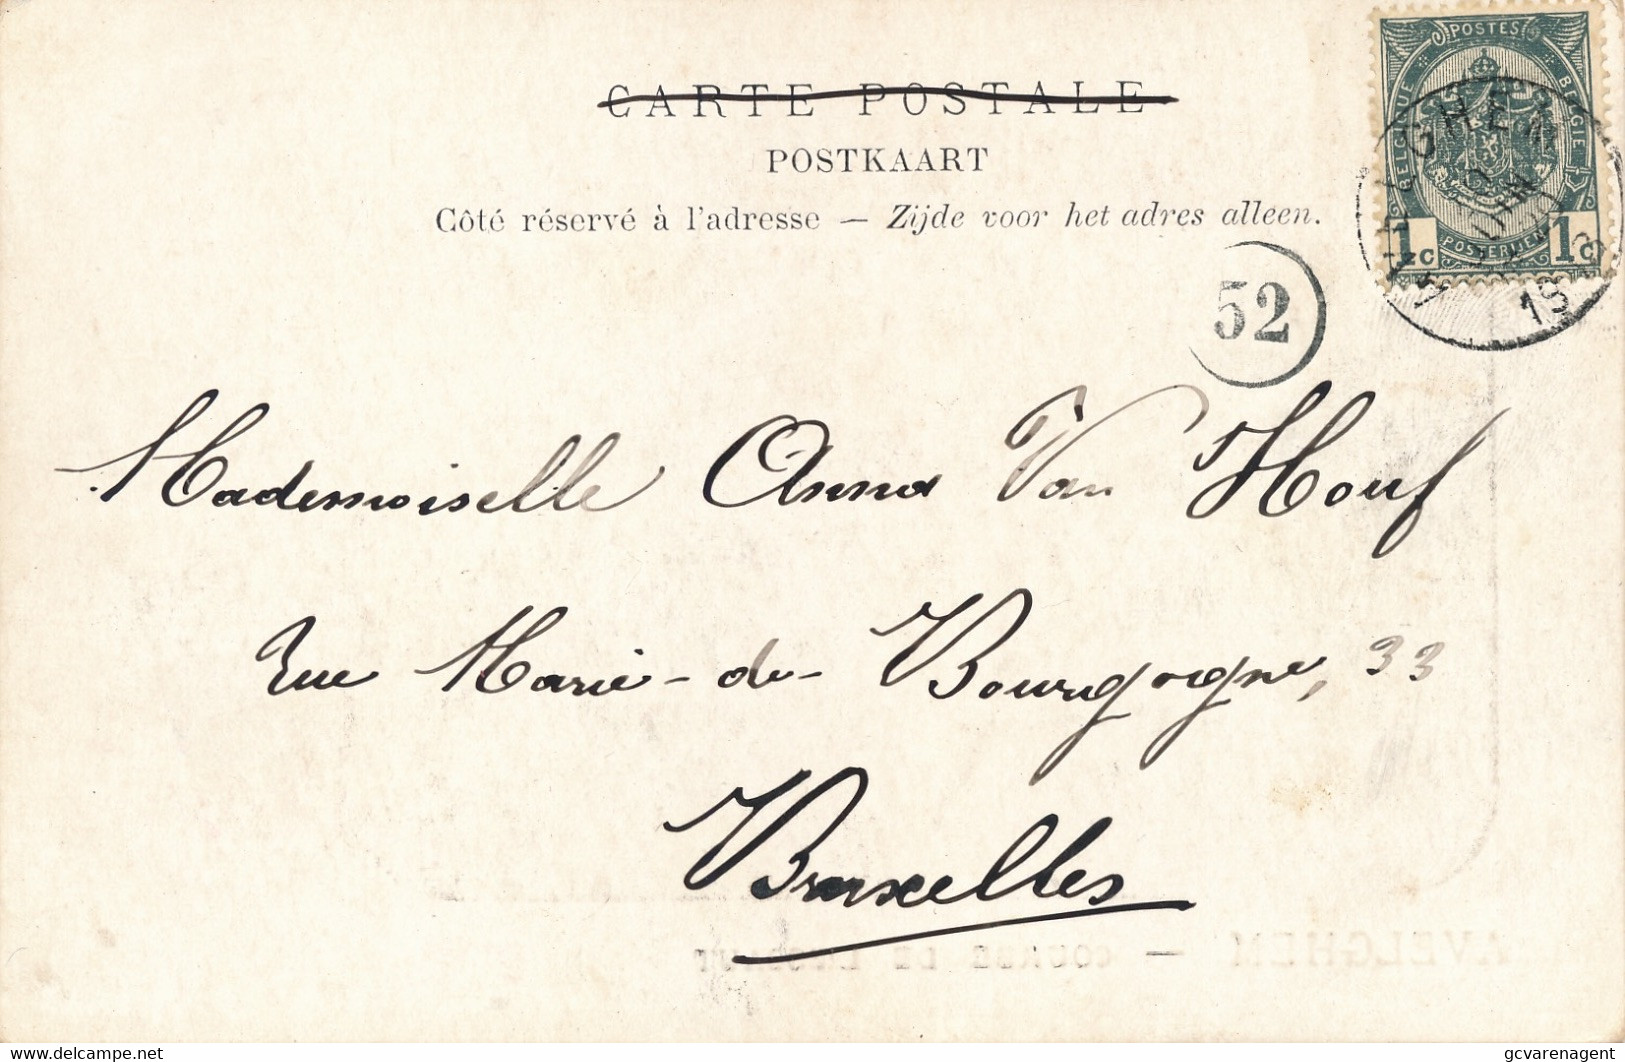 CARTE POSTALE
POSTKAART
Côté réservé à l'adresse — Zijde voor het adres alleen.
POSTES
BELGIQUE
BELGIE
1c 1c
POSTERIJEN
52
Mademoiselle Anna Van Houf
rue Marie-de-Bourgogne, 33
Bruxelles
AVELGHEM — COURBE DE L'ESCAUT
delcampe.net
gcvarenagent